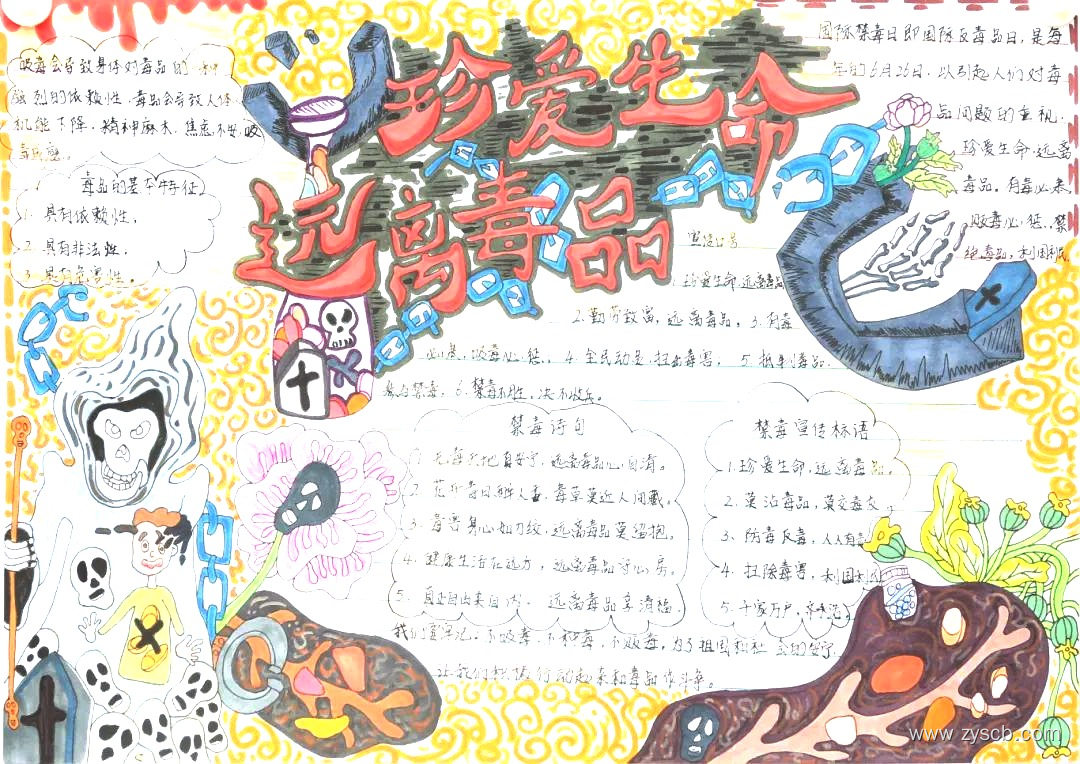 珍爱生命
远离毒品
吸毒会导致身体对毒品的
强烈的依赖性，毒品会导致人体
机能下降，精神麻木，焦虑不安，吸
毒的基本特征
1. 具有依赖性，
2. 具有非法性，
3. 具有危害性。
国际禁毒日即国际反毒品日，是每
年的6月26日，以引起人们对毒
品问题的重视，
珍爱生命，远离
毒品。有毒必肃，
贩毒必惩，禁
绝毒品，利国利民
宣传口号
1. 珍爱生命，远离毒品
2. 勤劳致富，远离毒品，3. 有毒
必肃，吸毒必惩， 4. 全民动员，扫出毒害， 5. 抵制毒品，
参与禁毒，6. 禁毒不胜，决不收兵。
禁毒诗句
远离毒品心自清。
2. 花开毒日醉人香，毒草莫近人闲藏。
3. 毒害身心如刀绞，远离毒品莫留抱，
4. 健康生活在远方，远离毒品守心房。
5. 远离毒品享清
我们要牢记：不吸毒，不种毒，不贩毒，为了祖国和社会的安宁
让我们积极行动起来和毒品作斗争。
禁毒宣传标语
1. 珍爱生命，远离毒品。
2. 莫沾毒品，莫交毒友，
3、防毒反毒，人人有责
4、扫除毒害，利国利民
5. 千家万户，
www.zyscb.com